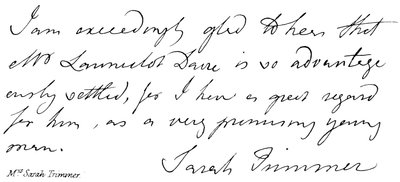 I am exceedingly glad to hear that
Mr Launcelot Davie is so advantage
ously settled, for I have a great regard
for him, as a very promising young
man.
Sarah Trimmer
Mrs Sarah Trimmer